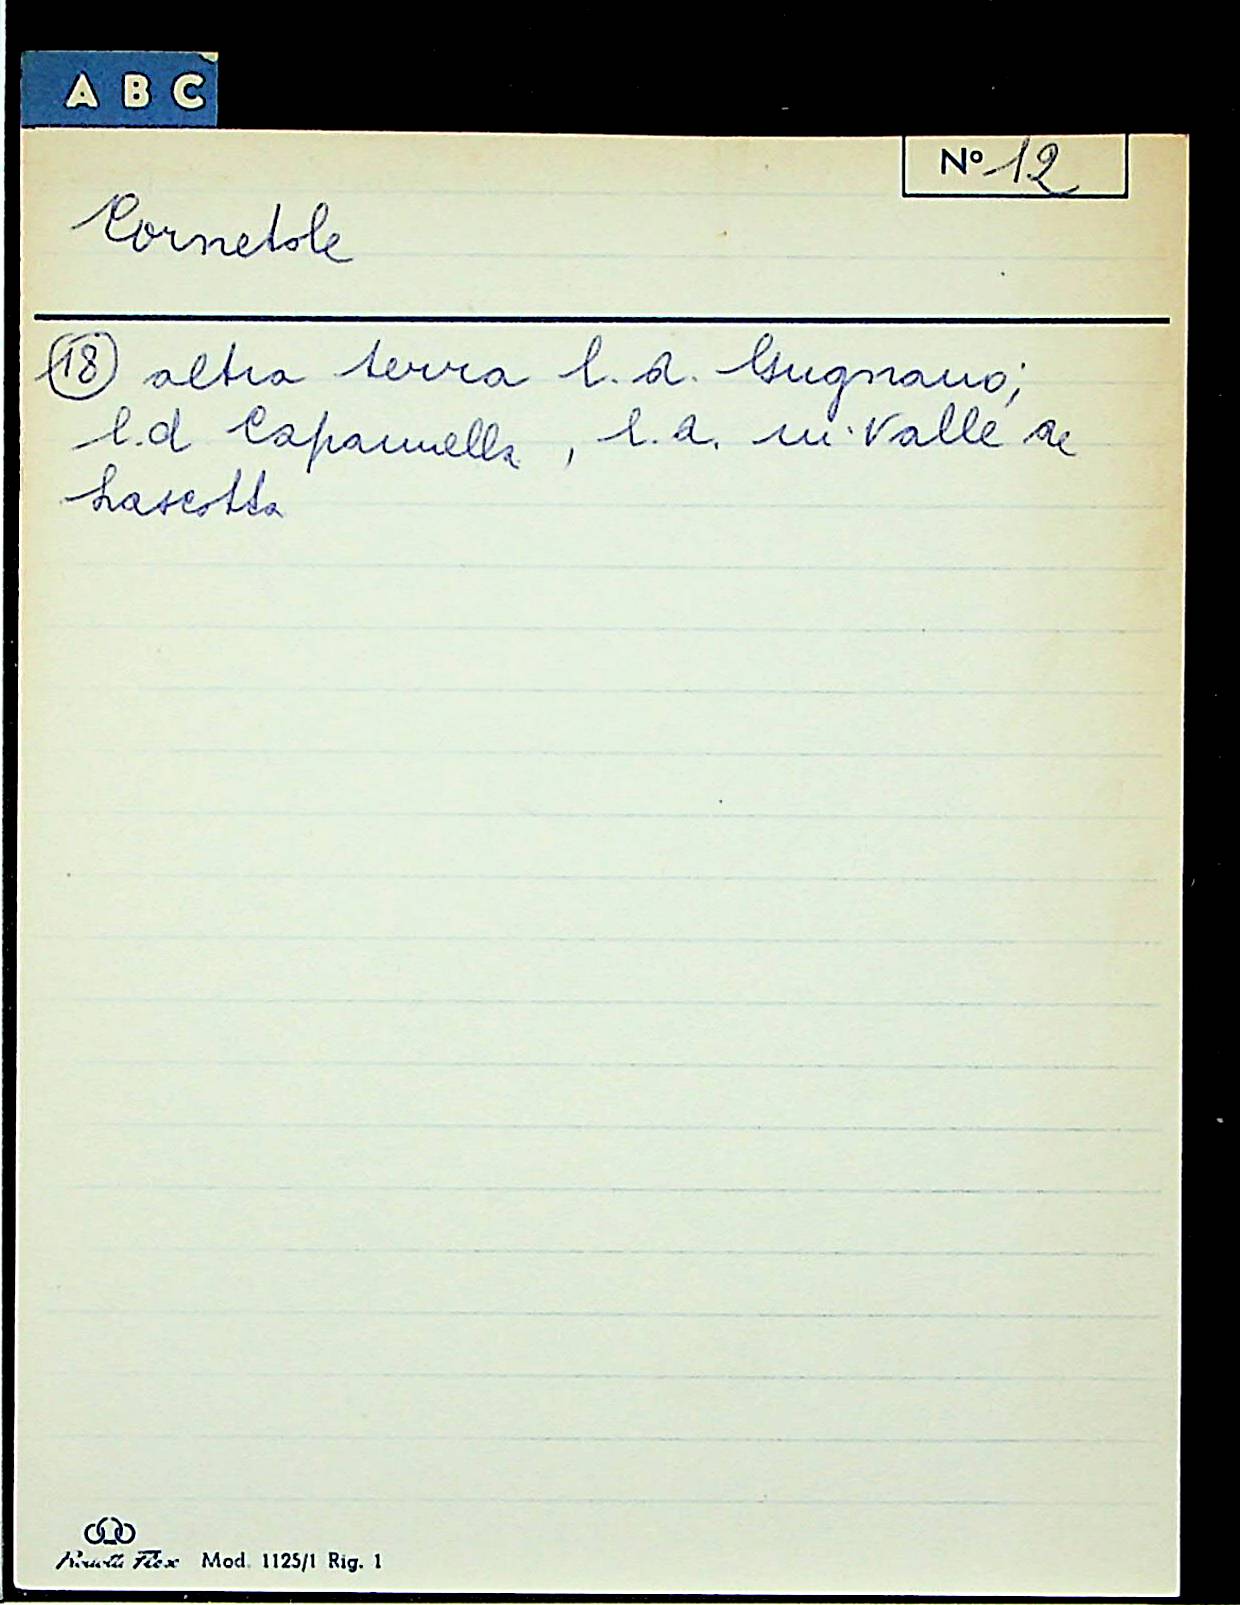 A B C
Nº 12
Cornetole
18 altra terra l.d. Gugnano;
l.d Capannella, l.d. in Valle de
Lascotta
Flex Mod. 1125/1 Rig. 1